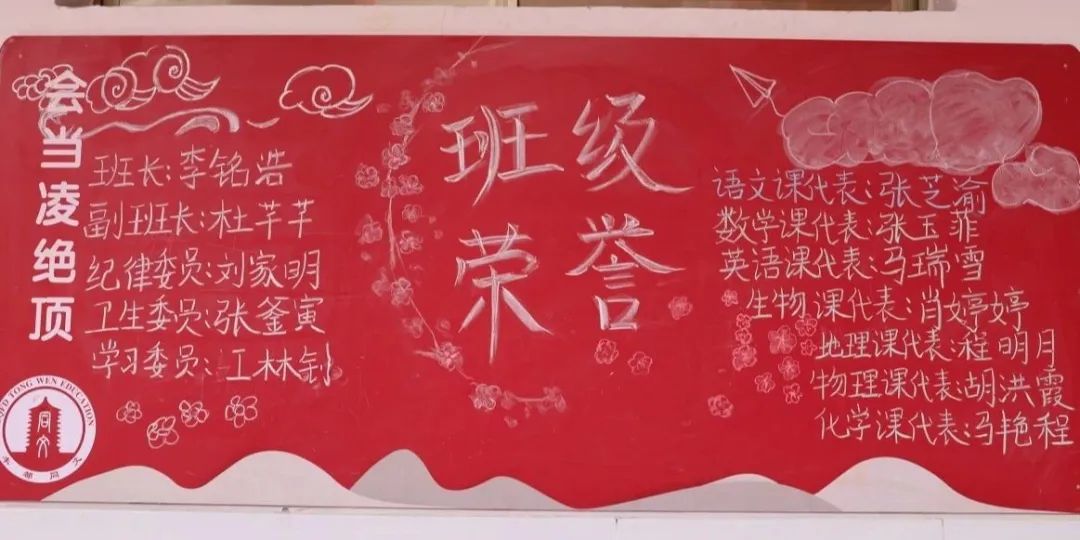 会当凌绝顶
班级
荣誉
班长:李铭浩
副班长:杜芊芊
纪律委员:刘家明
卫生委员:张釜寅
学习委员:工林钊
语文课代表:张芝渝
数学课代表:张玉菲
英语课代表:马瑞雪
生物课代表:肖婷婷
地理课代表:程明月
物理课代表:胡洪霞
化学课代表:马艳程
TONG WEN EDUCATION
同文